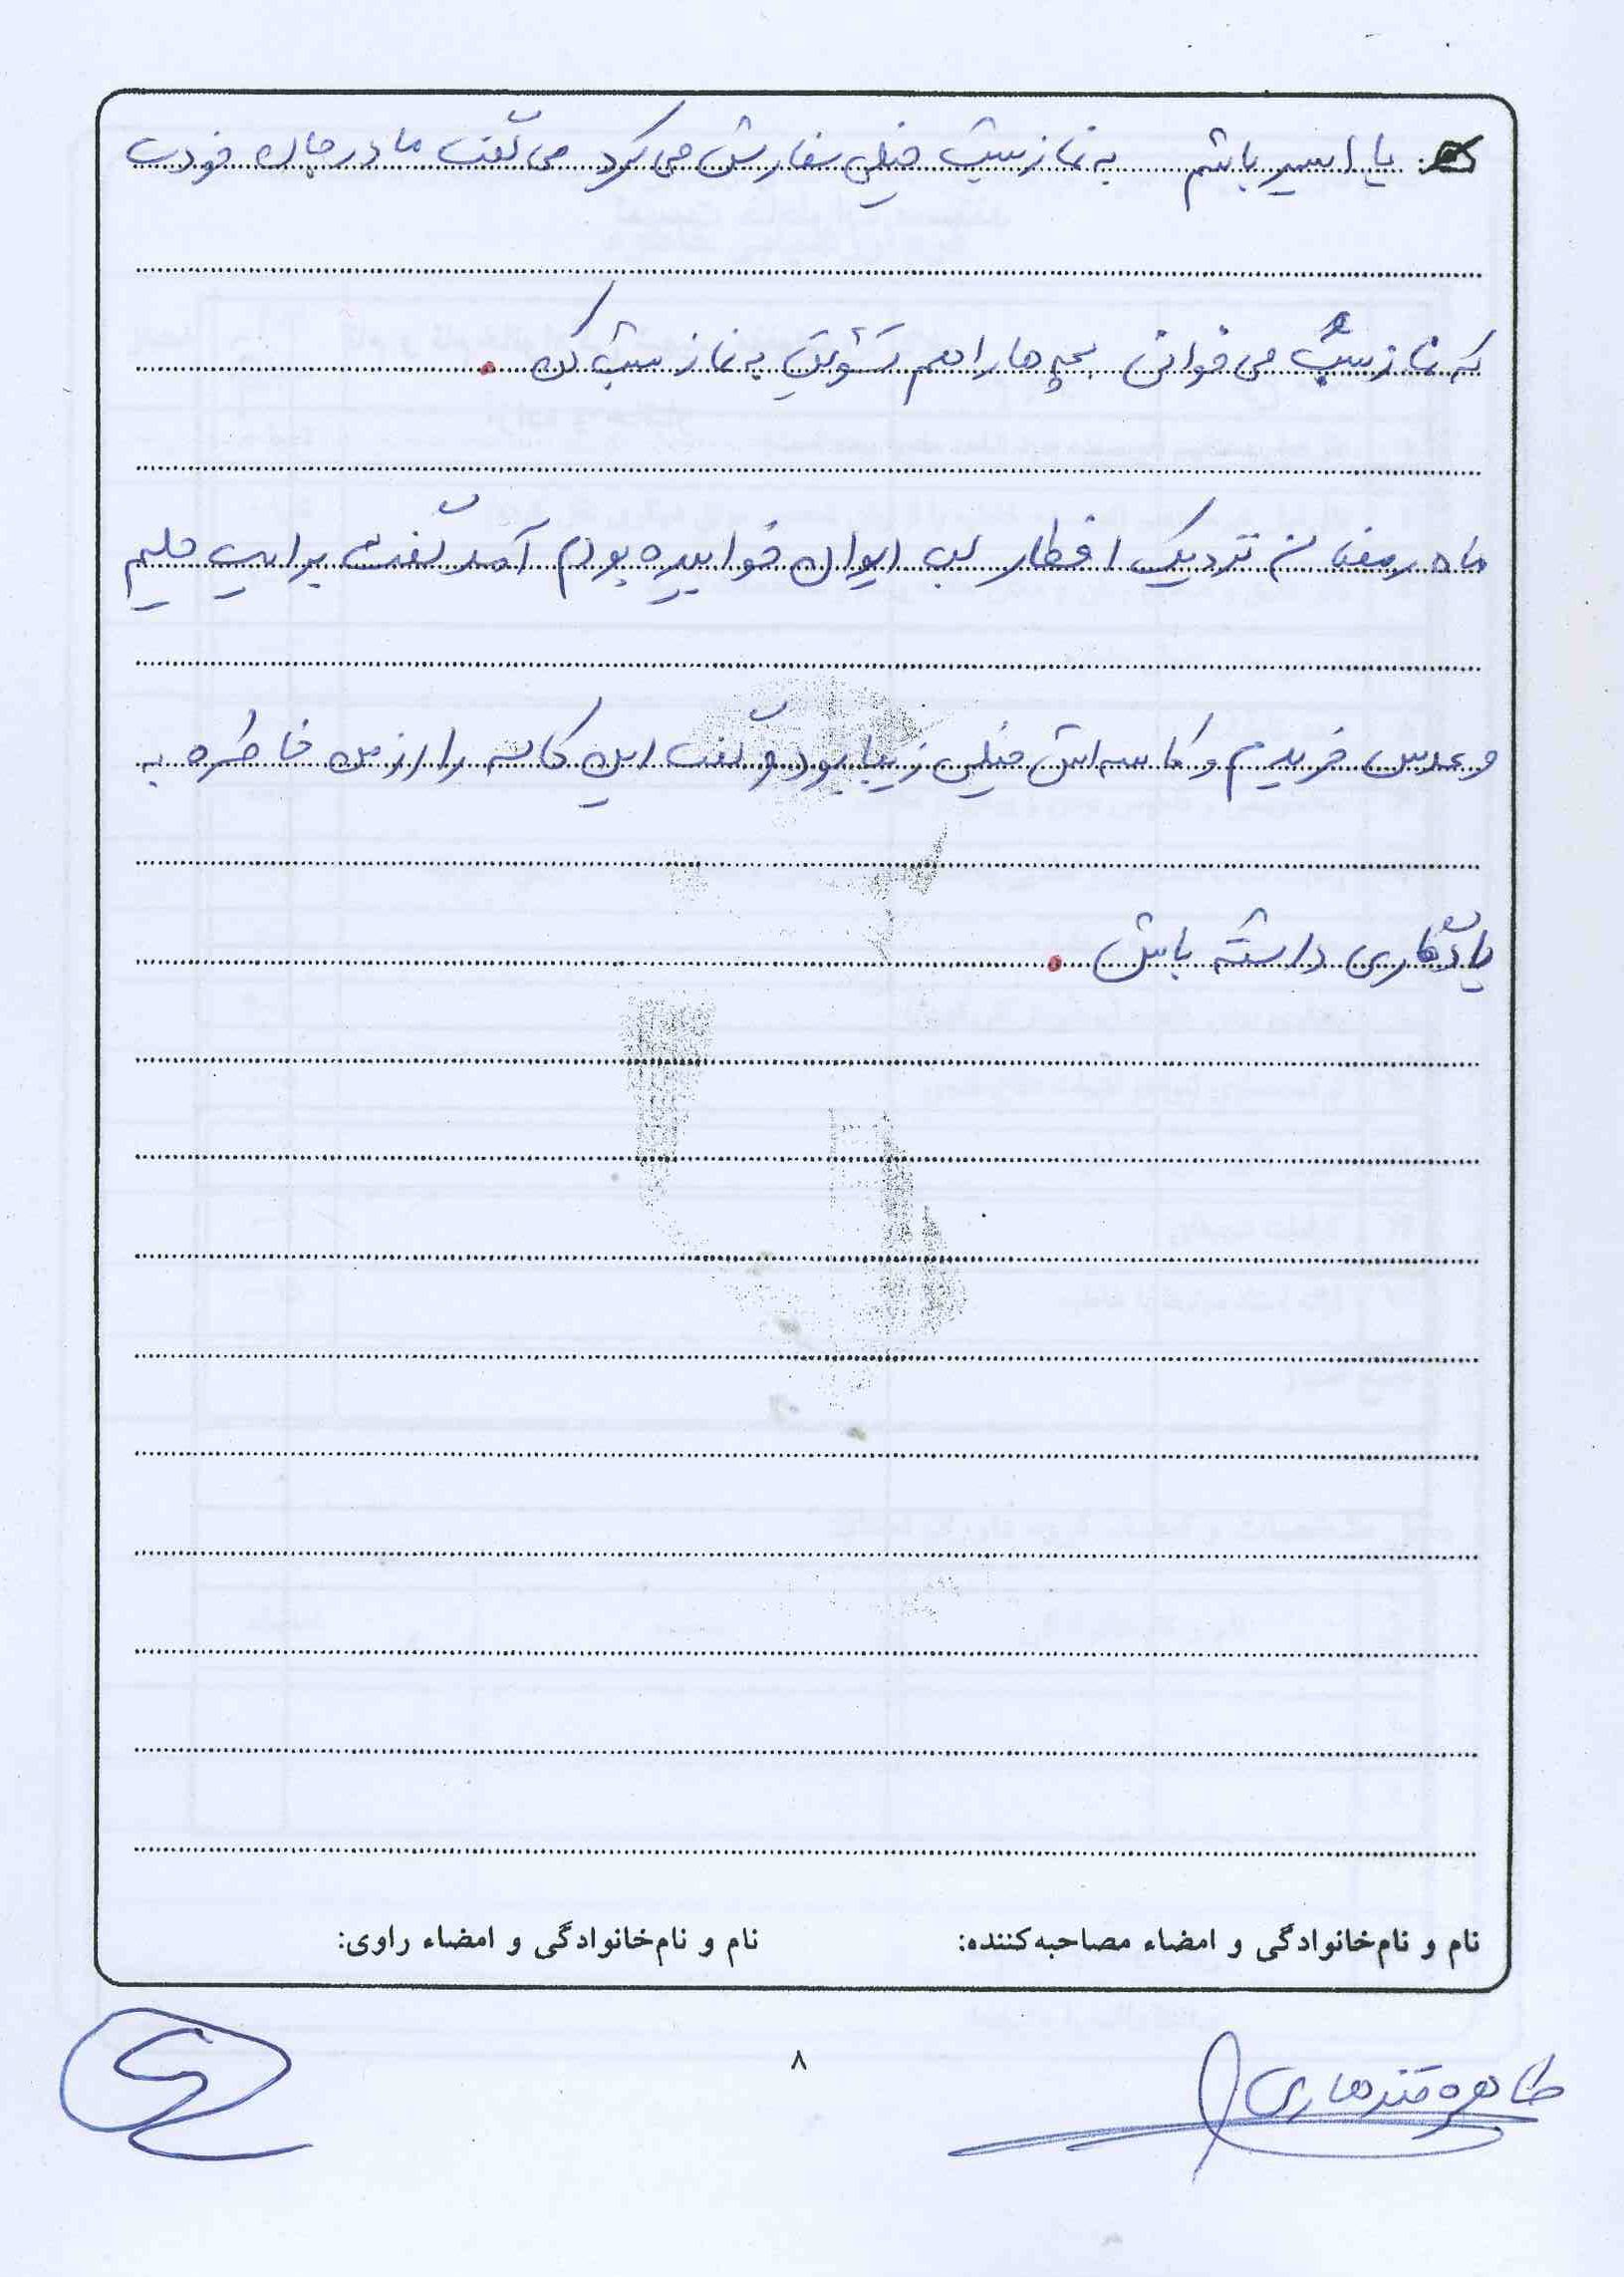 یا اسیر باشم به نماز شب خیلی سفارش می‌کرد می‌گفت مادر جان خودت
که نماز شب می‌خوانی بچه‌ها را هم تشویق به نماز شب کن.
ماه رمضان نزدیک افطار لب ایوان خوابیده بودم آمد گفت برایت حلیم
و عدس خریدم و کاسه‌اش خیلی زیبا بود و گفت این کاسه را از من خاطره به
یادگاری داشته باش.
نام و نام‌خانوادگی و امضاء مصاحبه‌کننده: نام و نام‌خانوادگی و امضاء راوی:
طاهره قندهاری
۸